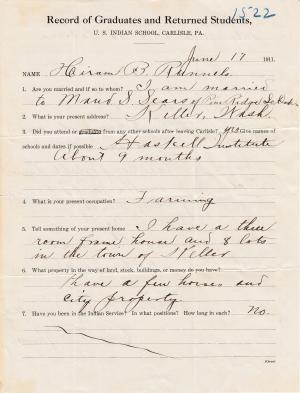 1522
Record of Graduates and Returned Students,
U. S. INDIAN SCHOOL, CARLISLE, PA.
June 17 1911.
NAME Hiram B. Runnels
1. Are you married and if so to whom? I am married
to Maud S. Sears of Pine Ridge S. Dak
2. What is your present address? Keller, Wash.
3. Did you attend or graduate from any other schools after leaving Carlisle? yes Give names of
schools and dates if possible Haskell Institute
About 9 months
4. What is your present occupation? Farming
5. Tell something of your present home I have a three
room frame house and 8 lots
in the town of Keller
6. What property in the way of land, stock, buildings, or money do you have?
I have a few horses and
City property
7. Have you been in the Indian Service? In what positions? How long in each? No.